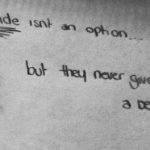 ide isnt an option...
but they never gave
a be